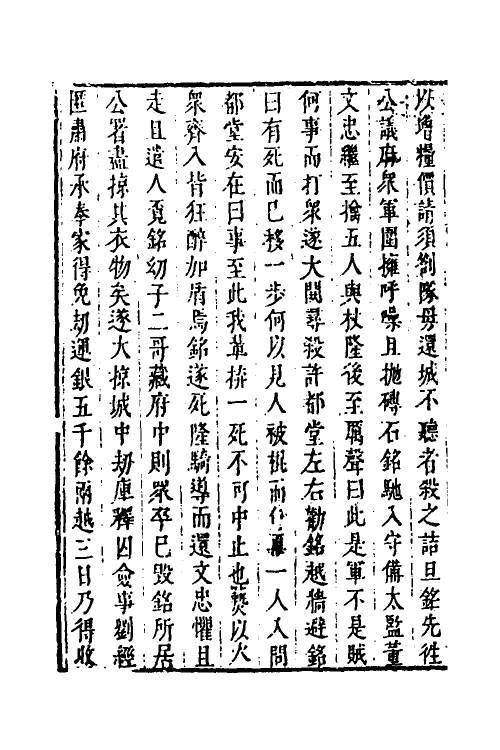 以增糧價請須劄隊毋還城不聽者殺之詰旦銘先往
公議府衆軍圍擁呼噪且拋磚石銘馳入守備太監董
文忠繼至擒五人與杖隆後至厲聲曰此是軍不是賊
何事而打衆遂大鬨尋殺許都堂左右勸銘越墻避銘
曰有死而已移一步何以見人被執而一人入問
都堂安在曰事至此我輩拚一死不可中止也焚以火
衆齊入皆狂醉加盾焉銘遂死隆騎導而還文忠懼且
走且遣人覓銘幼子二哥藏府中則衆卒已毀銘所居
公署盡掠其衣物矣遂大掠城中劫庫釋囚僉事劉經
匿肅府承奉家得免劫運銀五千餘兩越三日乃得收